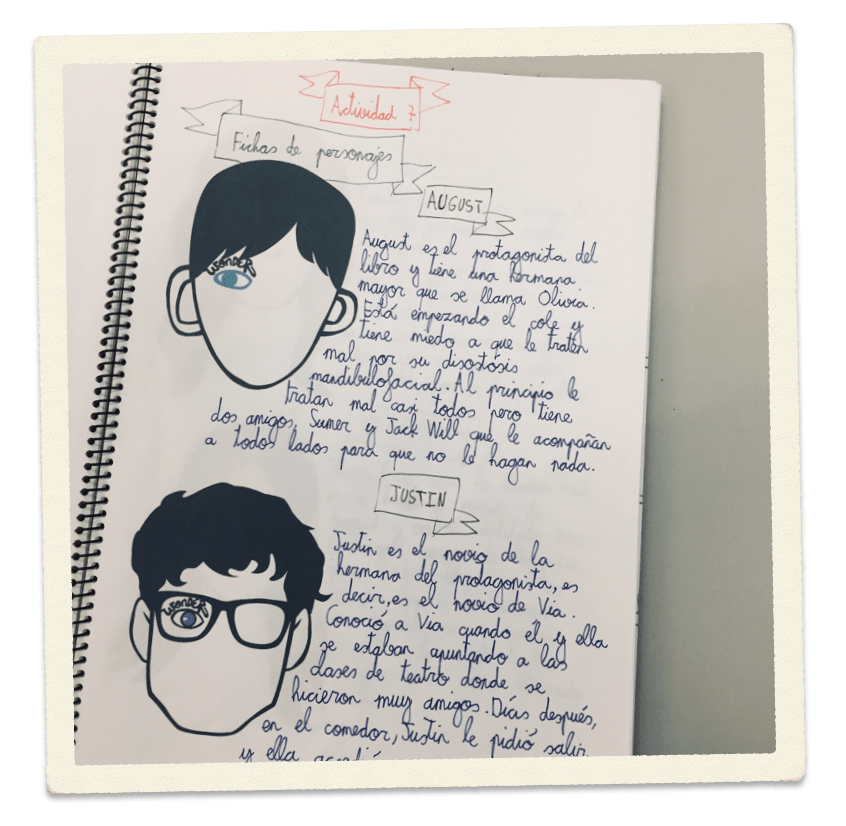 Actividad 7
Fichas de personajes
AUGUST
WONDER
August es el protagonista del
libro y tiene una hermana
mayor que se llama Olivia.
Está empezando el cole y
tiene miedo a que le traten
mal por su disostósis
mandibulofacial. Al principio le
tratan mal casi todos pero tiene
dos amigos, Sumer y Jack Will que le acompañan
a todos lados para que no le hagan nada.
JUSTIN
WONDER
Justin es el novio de la
hermana del protagonista, es
decir, es el novio de Via.
Conoció a Via cuando él y ella
se estaban apuntando a las
clases de teatro donde se
hicieron muy amigos. Días después,
en el comedor, Justin le pidió salir
y ella